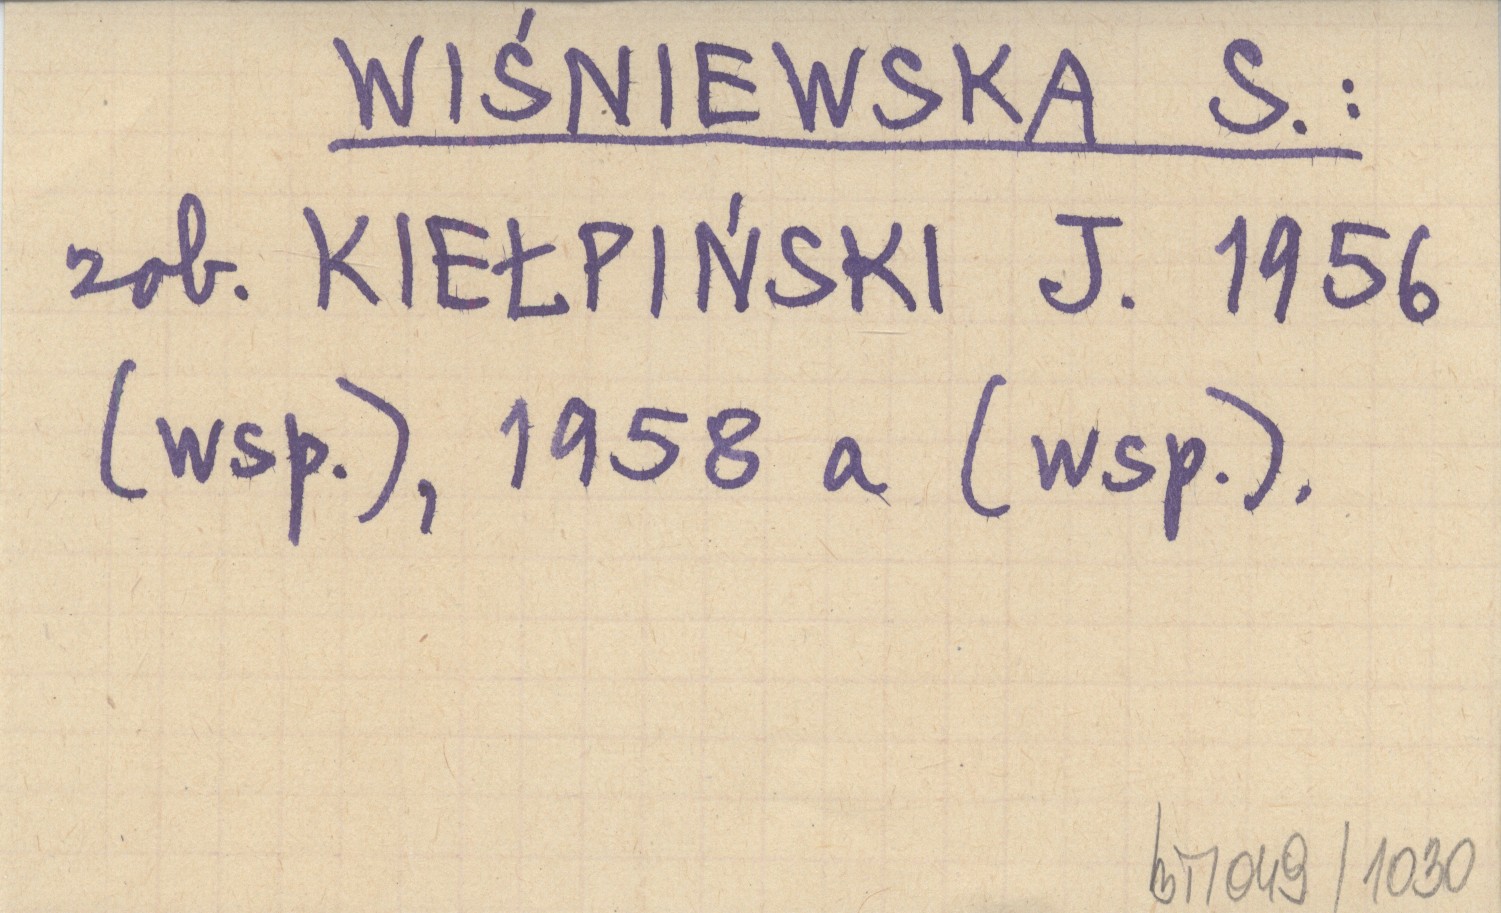 WIŚNIEWSKA S.:
zob. KIEŁPIŃSKI J. 1956
(wsp.), 1958 a (wsp.).
049/1030